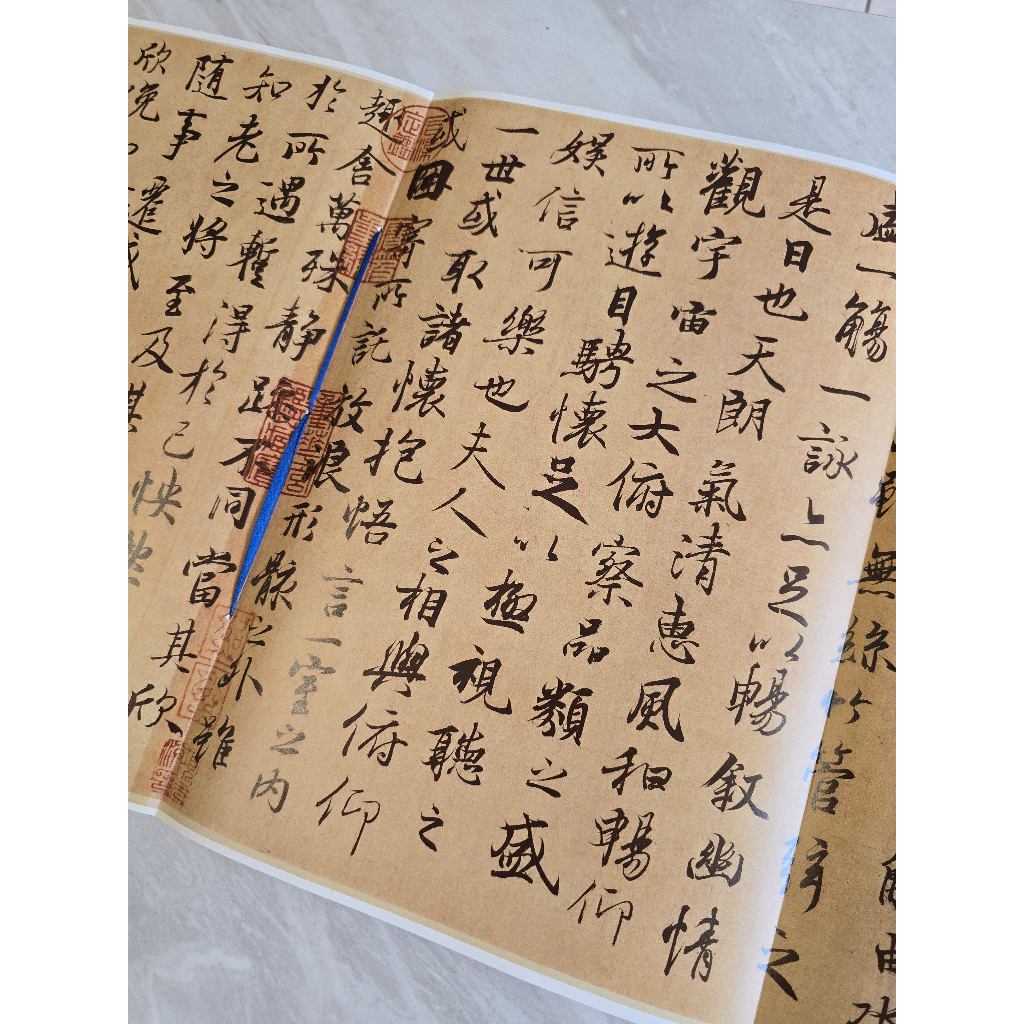 雖無絲竹管弦之
盛一觴一詠亦足以暢敘幽情
是日也天朗氣清惠風和暢仰
觀宇宙之大俯察品類之盛
所以遊目騁懷足以極視聽之
娛信可樂也夫人之相與俯仰
一世或取諸懷抱悟言一室之內
或因寄所託放浪形骸之外雖
趣舍萬殊靜躁不同當其欣
於所遇暫得於己怏然
知老之將至及其
隨事遷感
欣俛